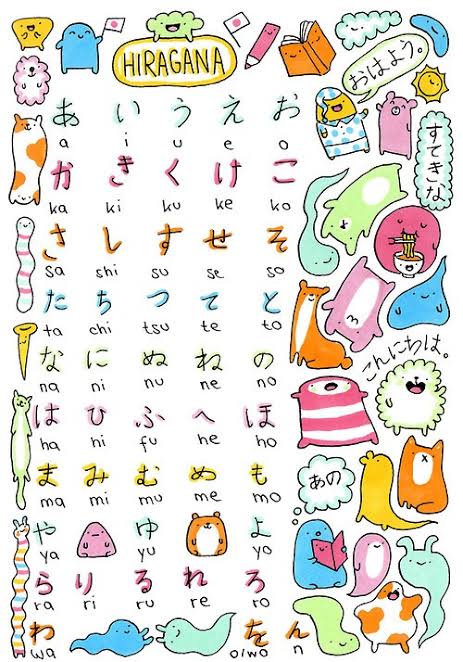 HIRAGANA
おはよう。
すてきな
こんにちは。
あの
あ い う え お
a i u e o
か き く け こ
ka ki ku ke ko
さ し す せ そ
sa shi su se so
た ち つ て と
ta chi tsu te to
な に ぬ ね の
na ni nu ne no
は ひ ふ へ ほ
ha hi fu he ho
ま み む め も
ma mi mu me mo
や ゆ よ
ya yu yo
ら り る れ ろ
ra ri ru re ro
わ を ん
wa o/wo n